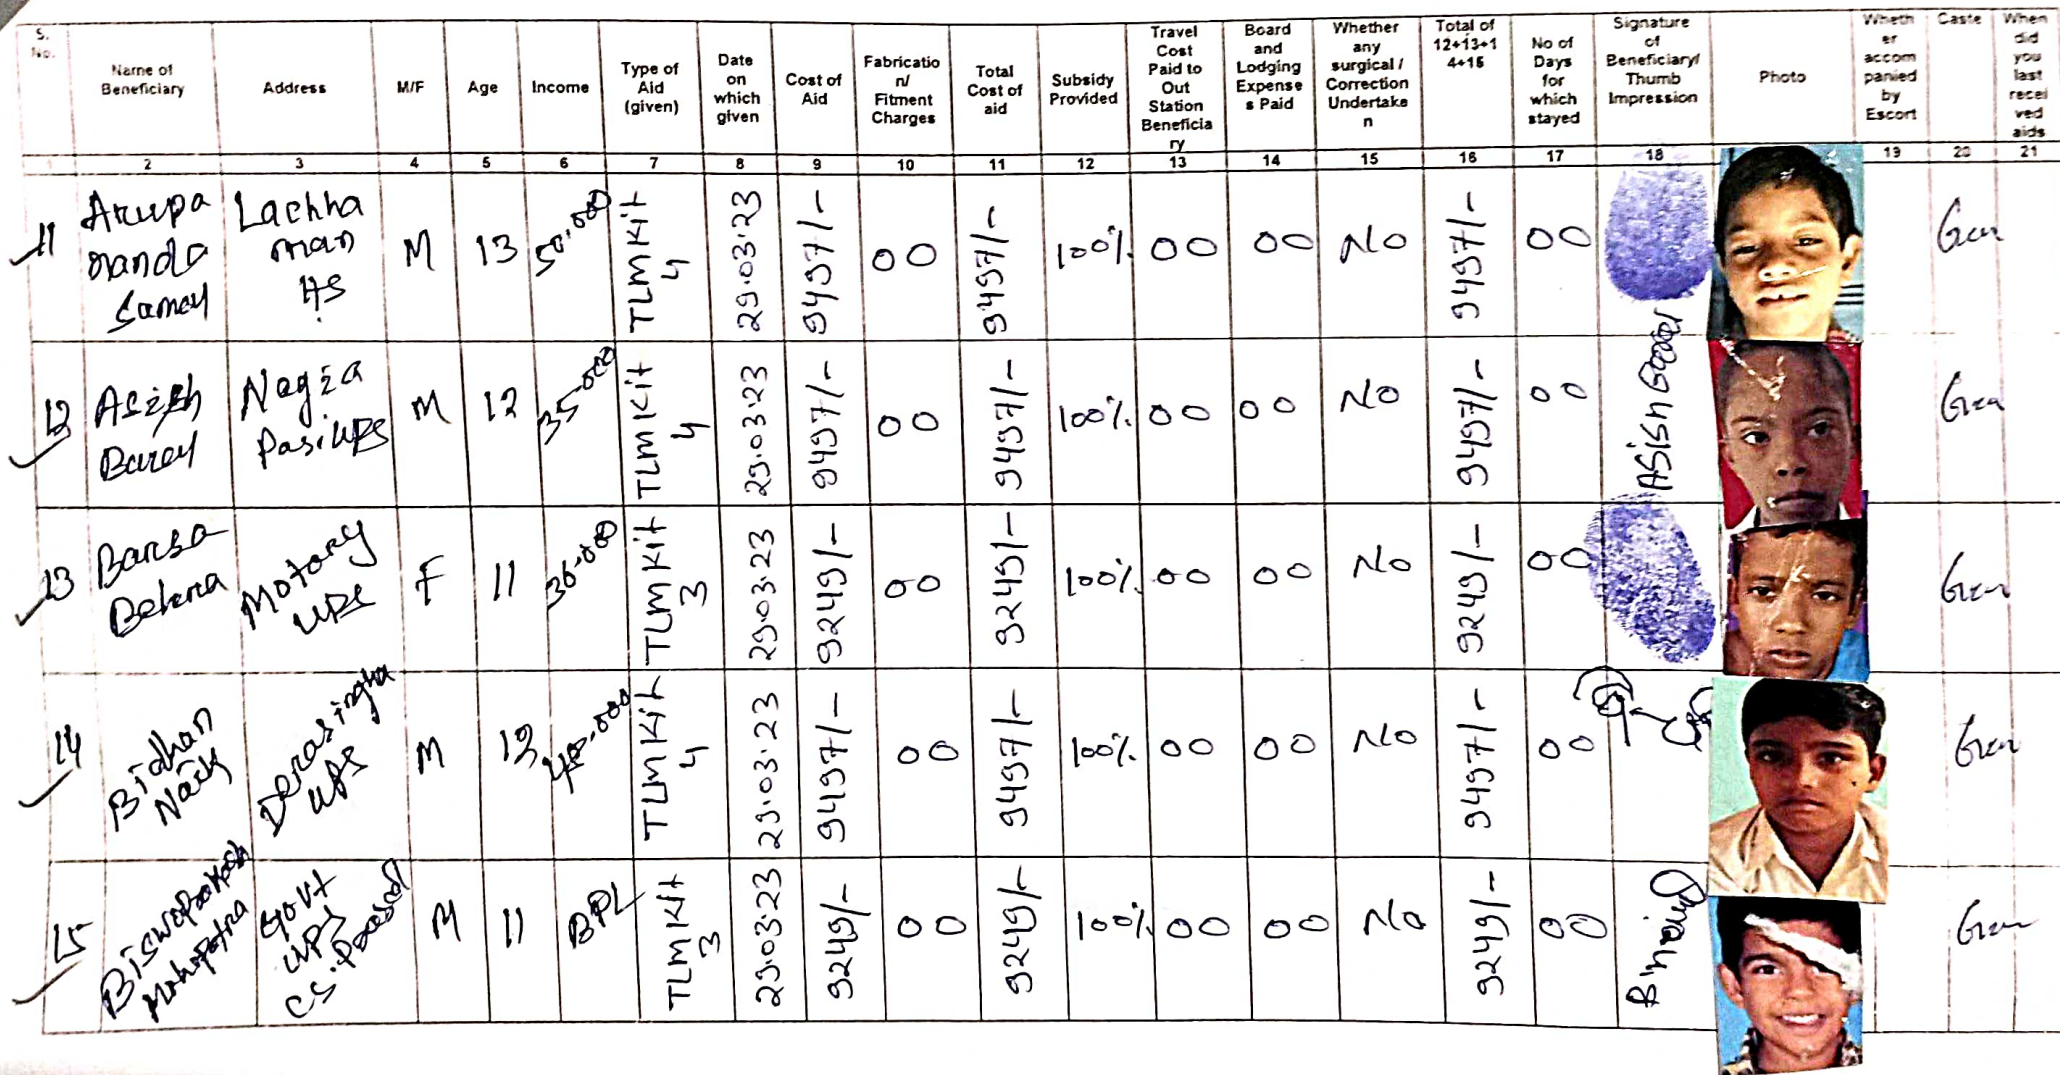 S. No.
Name of Beneficiary
Address
M/F
Age
Income
Type of Aid (given)
Date on which given
Cost of Aid
Fabricatio n/ Fitment Charges
Total Cost of aid
Subsidy Provided
Travel Cost Paid to Out Station Beneficia ry
Board and Lodging Expense s Paid
Whether any surgical / Correction Undertake n
Total of 12+13+1 4+15
No of Days for which stayed
Signature of Beneficiary/ Thumb Impression
Photo
Wheth er accom panied by Escort
Caste
When did you last recei ved aids
1 2 3 4 5 6 7 8 9 10 11 12 13 14 15 16 17 18 19 20 21
11 Arupa nanda Samal Lachha man HS M 13 50.000 TLM Kit 4 29.03.23 9497/- 00 9497/- 100% 00 00 No 9497/- 00 Gen
12 Asish Baral Nagza Pasi UPS M 12 35-000 TLM Kit 4 29.03.23 9497/- 00 9497/- 100% 00 00 No 9497/- 00 Asish Gen
13 Barsa Behera Motary UPS F 11 36-000 TLM Kit 3 29.03.23 9249/- 00 9249/- 100% 00 00 No 9249/- 00 Gen
14 Bidhan Naik Derasingha UPS M 12 40-000 TLM Kit 4 29.03.23 9497/- 00 9497/- 100% 00 00 No 9497/- 00 Gen
15 Biswaprakash Mohapatra Govt UPS M 11 BPL TLM Kit 3 29.03.23 9249/- 00 9249/- 100% 00 00 No 9249/- 00 Gen